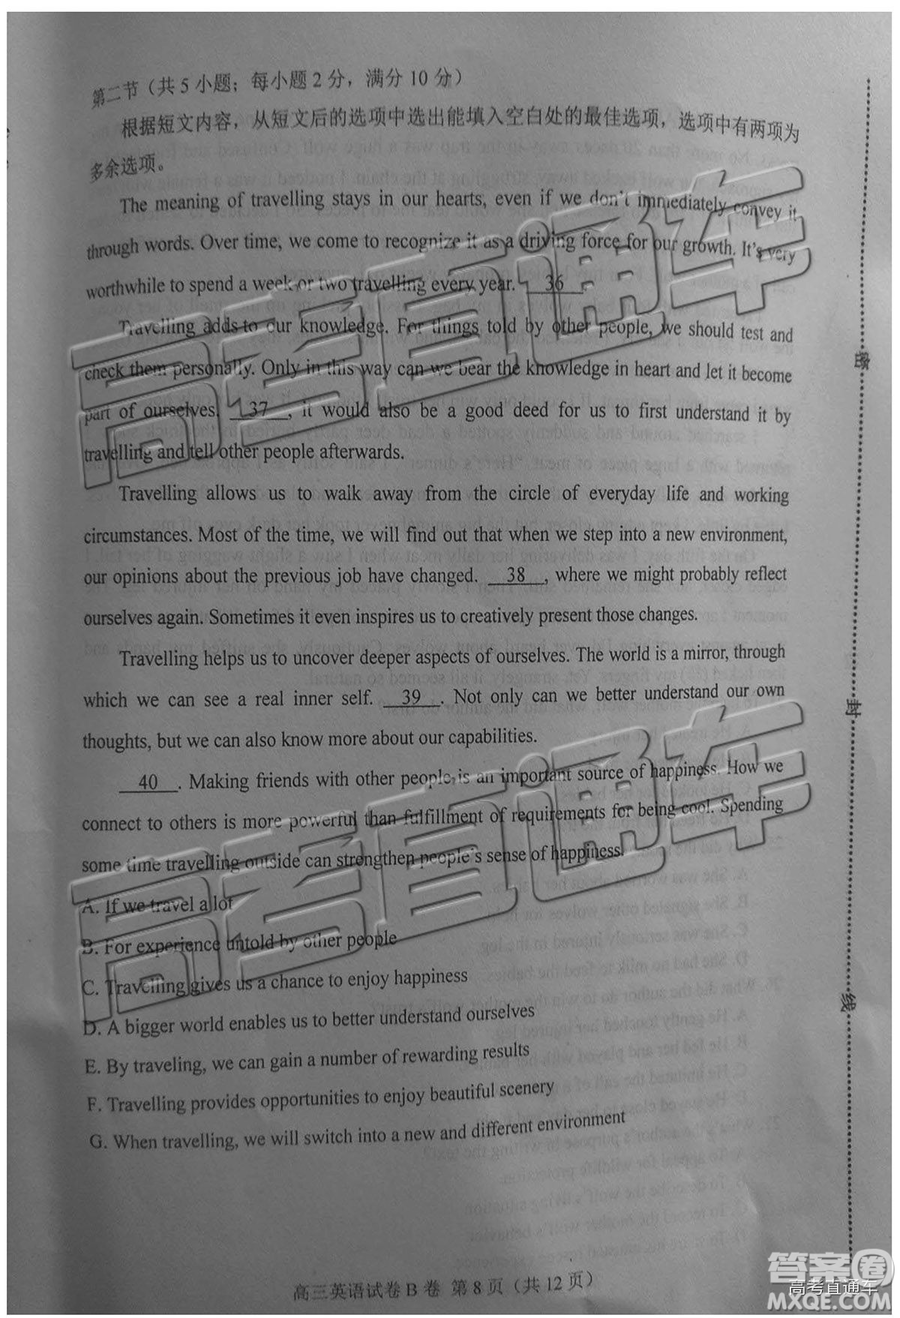 第二节（共 5 小题；每小题 2 分，满分 10 分）
根据短文内容，从短文后的选项中选出能填入空白处的最佳选项，选项中有两项为
多余选项。
The meaning of travelling stays in our hearts, even if we don't immediately convey it
through words. Over time, we come to recognize it as a driving force for our growth. It's very
worthwhile to spend a week or two travelling every year. 36
Travelling adds to our knowledge. For things told by other people, we should test and
check them personally. Only in this way can we bear the knowledge in heart and let it become
part of ourselves. 37 , it would also be a good deed for us to first understand it by
travelling and tell other people afterwards.
Travelling allows us to walk away from the circle of everyday life and working
circumstances. Most of the time, we will find out that when we step into a new environment,
our opinions about the previous job have changed. 38 , where we might probably reflect
ourselves again. Sometimes it even inspires us to creatively present those changes.
Travelling helps us to uncover deeper aspects of ourselves. The world is a mirror, through
which we can see a real inner self. 39 . Not only can we better understand our own
thoughts, but we can also know more about our capabilities.
40 . Making friends with other people is an important source of happiness. How we
connect to others is more powerful than fulfillment of requirements for being cool. Spending
some time travelling outside can strengthen people's sense of happiness.
A. If we travel a lot
B. For experience untold by other people
C. Travelling gives us a chance to enjoy happiness
D. A bigger world enables us to better understand ourselves
E. By traveling, we can gain a number of rewarding results
F. Travelling provides opportunities to enjoy beautiful scenery
G. When travelling, we will switch into a new and different environment
高三英语试卷 B 卷 第 8 页（共 12 页）
密
封
线
高考直通车
高考直通车
答案圈
高考直通车
MXQE.COM